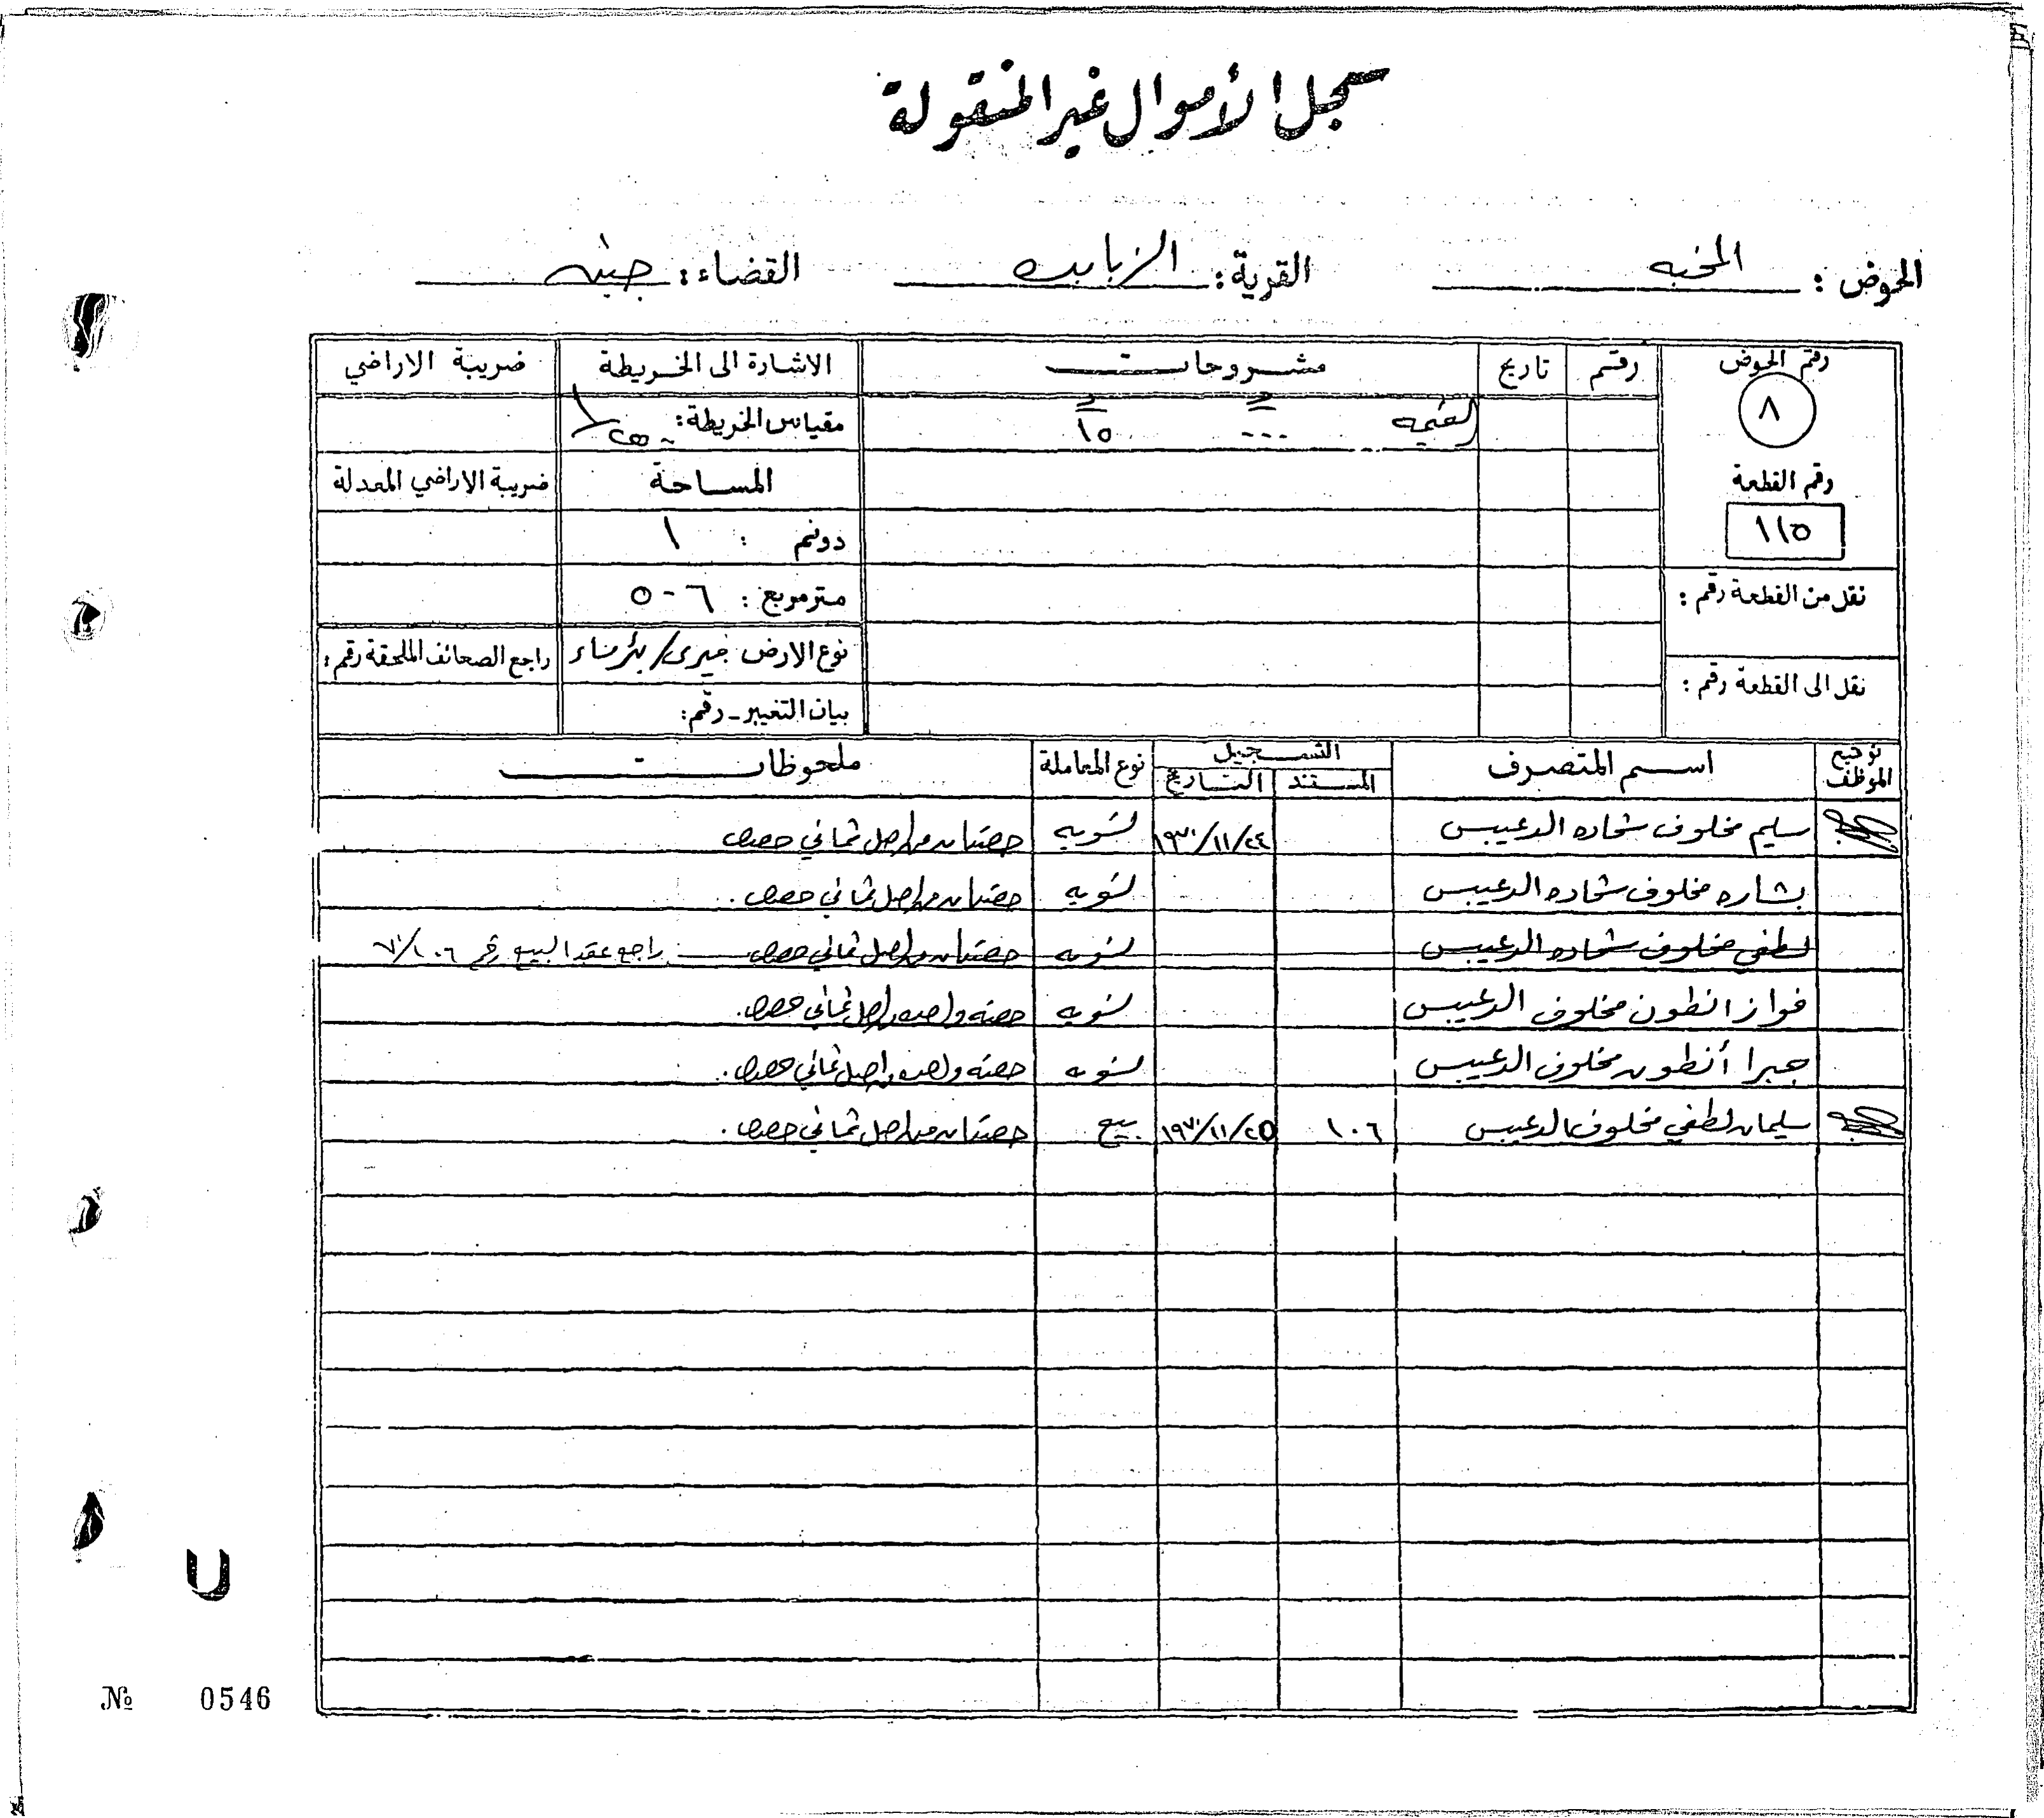 سجل الأموال غير المنقولة
الحوض : المخبه القرية : الزبابده القضاء : جنين
رقم الحوض رقم تاريخ مشروحات الاشارة الى الخريطة ضريبة الاراضي
٨ القيمه ١٥ مقياس الخريطة :
رقم القطعة المساحة ضريبة الاراضي المعدلة
١١٥ دونم : ١
نقل من القطعة رقم : متر مربع : ٥٠٦
نوع الارض ميري / بئر ماء راجع الصحائف الملحقة رقم :
نقل الى القطعة رقم : بيان التغيير - رقم :
توقيع الموظف اسم المتصرف التسجيل نوع المعاملة ملحوظات
المستند التاريخ
سليم مخلوف شحاده الدعيبس ١٩٧٠/١١/٢٤ تسويه حصتان من اصل ثماني حصص
بشاره مخلوف شحاده الدعيبس تسويه حصتان من اصل ثماني حصص .
لطفي مخلوف شحاده الدعيبس تسويه حصتان من اصل ثماني حصص راجع عقد البيع رقم ٧٠/١٠٦
فواز انطون مخلوف الدعيبس تسويه حصه واحده من اصل ثماني حصص .
جبرا أنطون مخلوف الدعيبس تسويه حصه واحده من اصل ثماني حصص .
سليمان لطفي مخلوف الدعيبس ١٠٦ ١٩٧٠/١١/٢٥ بيع حصتان من اصل ثماني حصص .
U
№ 0546